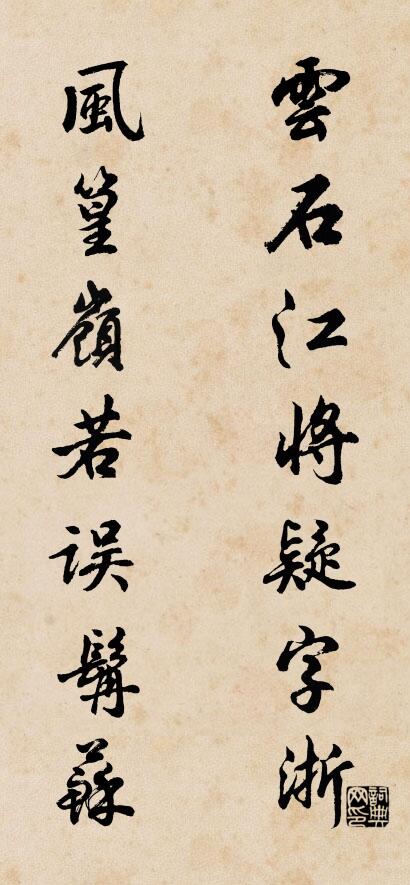 雲石江將疑字浙
風篁嶺若誤髯蘇
詞典网印